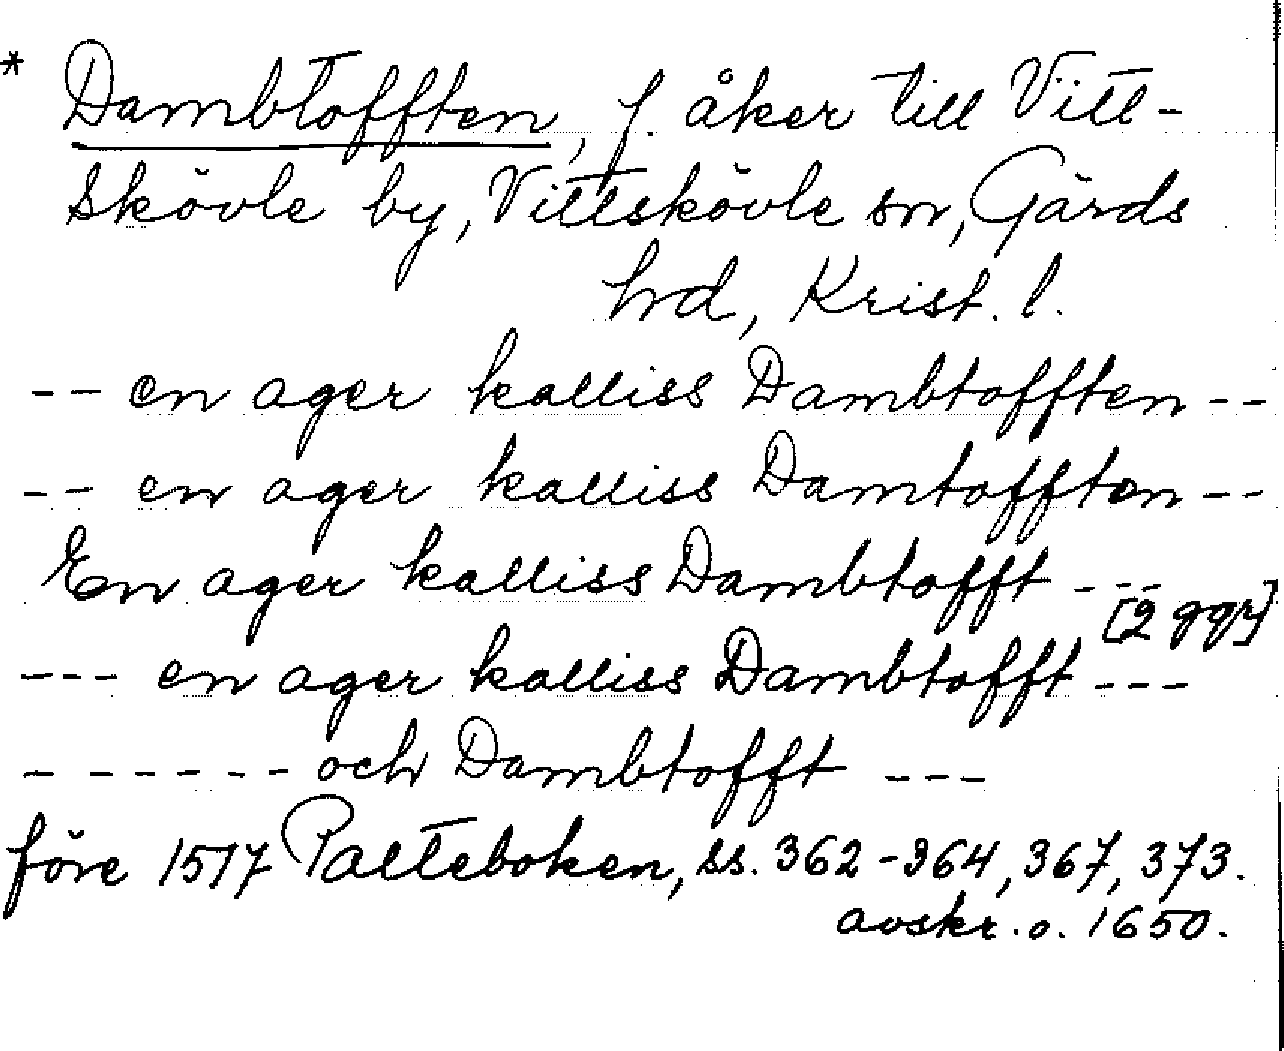 * Dambtofften, f. åker till Vitt-
skövle by, Vittskövle sn, Gärds
hrd, Krist. l.
-- en ager kalliss Dambtofften --
-- en ager kalliss Damtofften --
En ager kalliss Dambtofft ---
[2 ggr]
--- en ager kalliss Dambtofft ---
------ och Dambtofft ---
före 1517 Palteboken, ss. 362-364, 367, 373.
avskr. o. 1650.